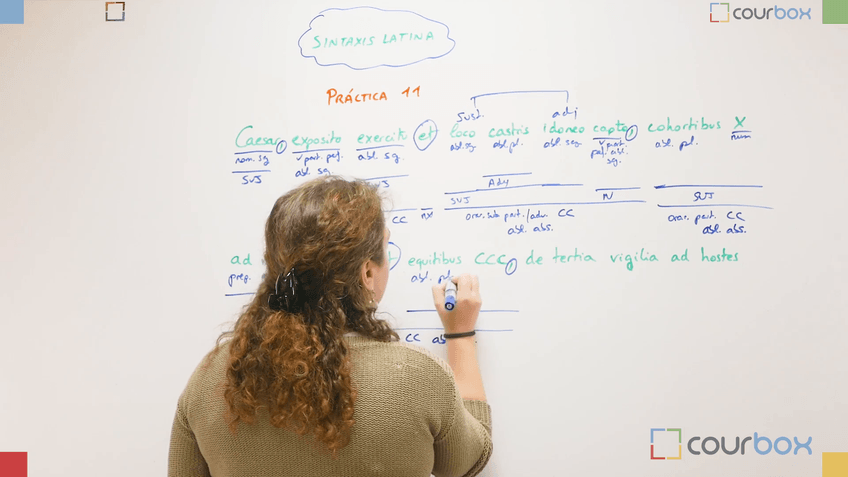 courbox
SINTAXIS LATINA
PRÁCTICA 11
sust. adj
Caesar, exposito exercitu et loco castris idoneo capto, cohortibus X
nom. sg v part. perf. abl. sg. abl. sg. abl. pl. abl. sg v part. abl. pl. num
abl. sg. perf. abl. sg.
SUJ SUJ Ady
SUJ N SUJ
CC nx orac. sub part./adv. CC orac. part. CC
abl. abs. abl. abs.
ad equitibus CCC, de tertia vigilia ad hostes
prep. abl. pl.
CC
courbox